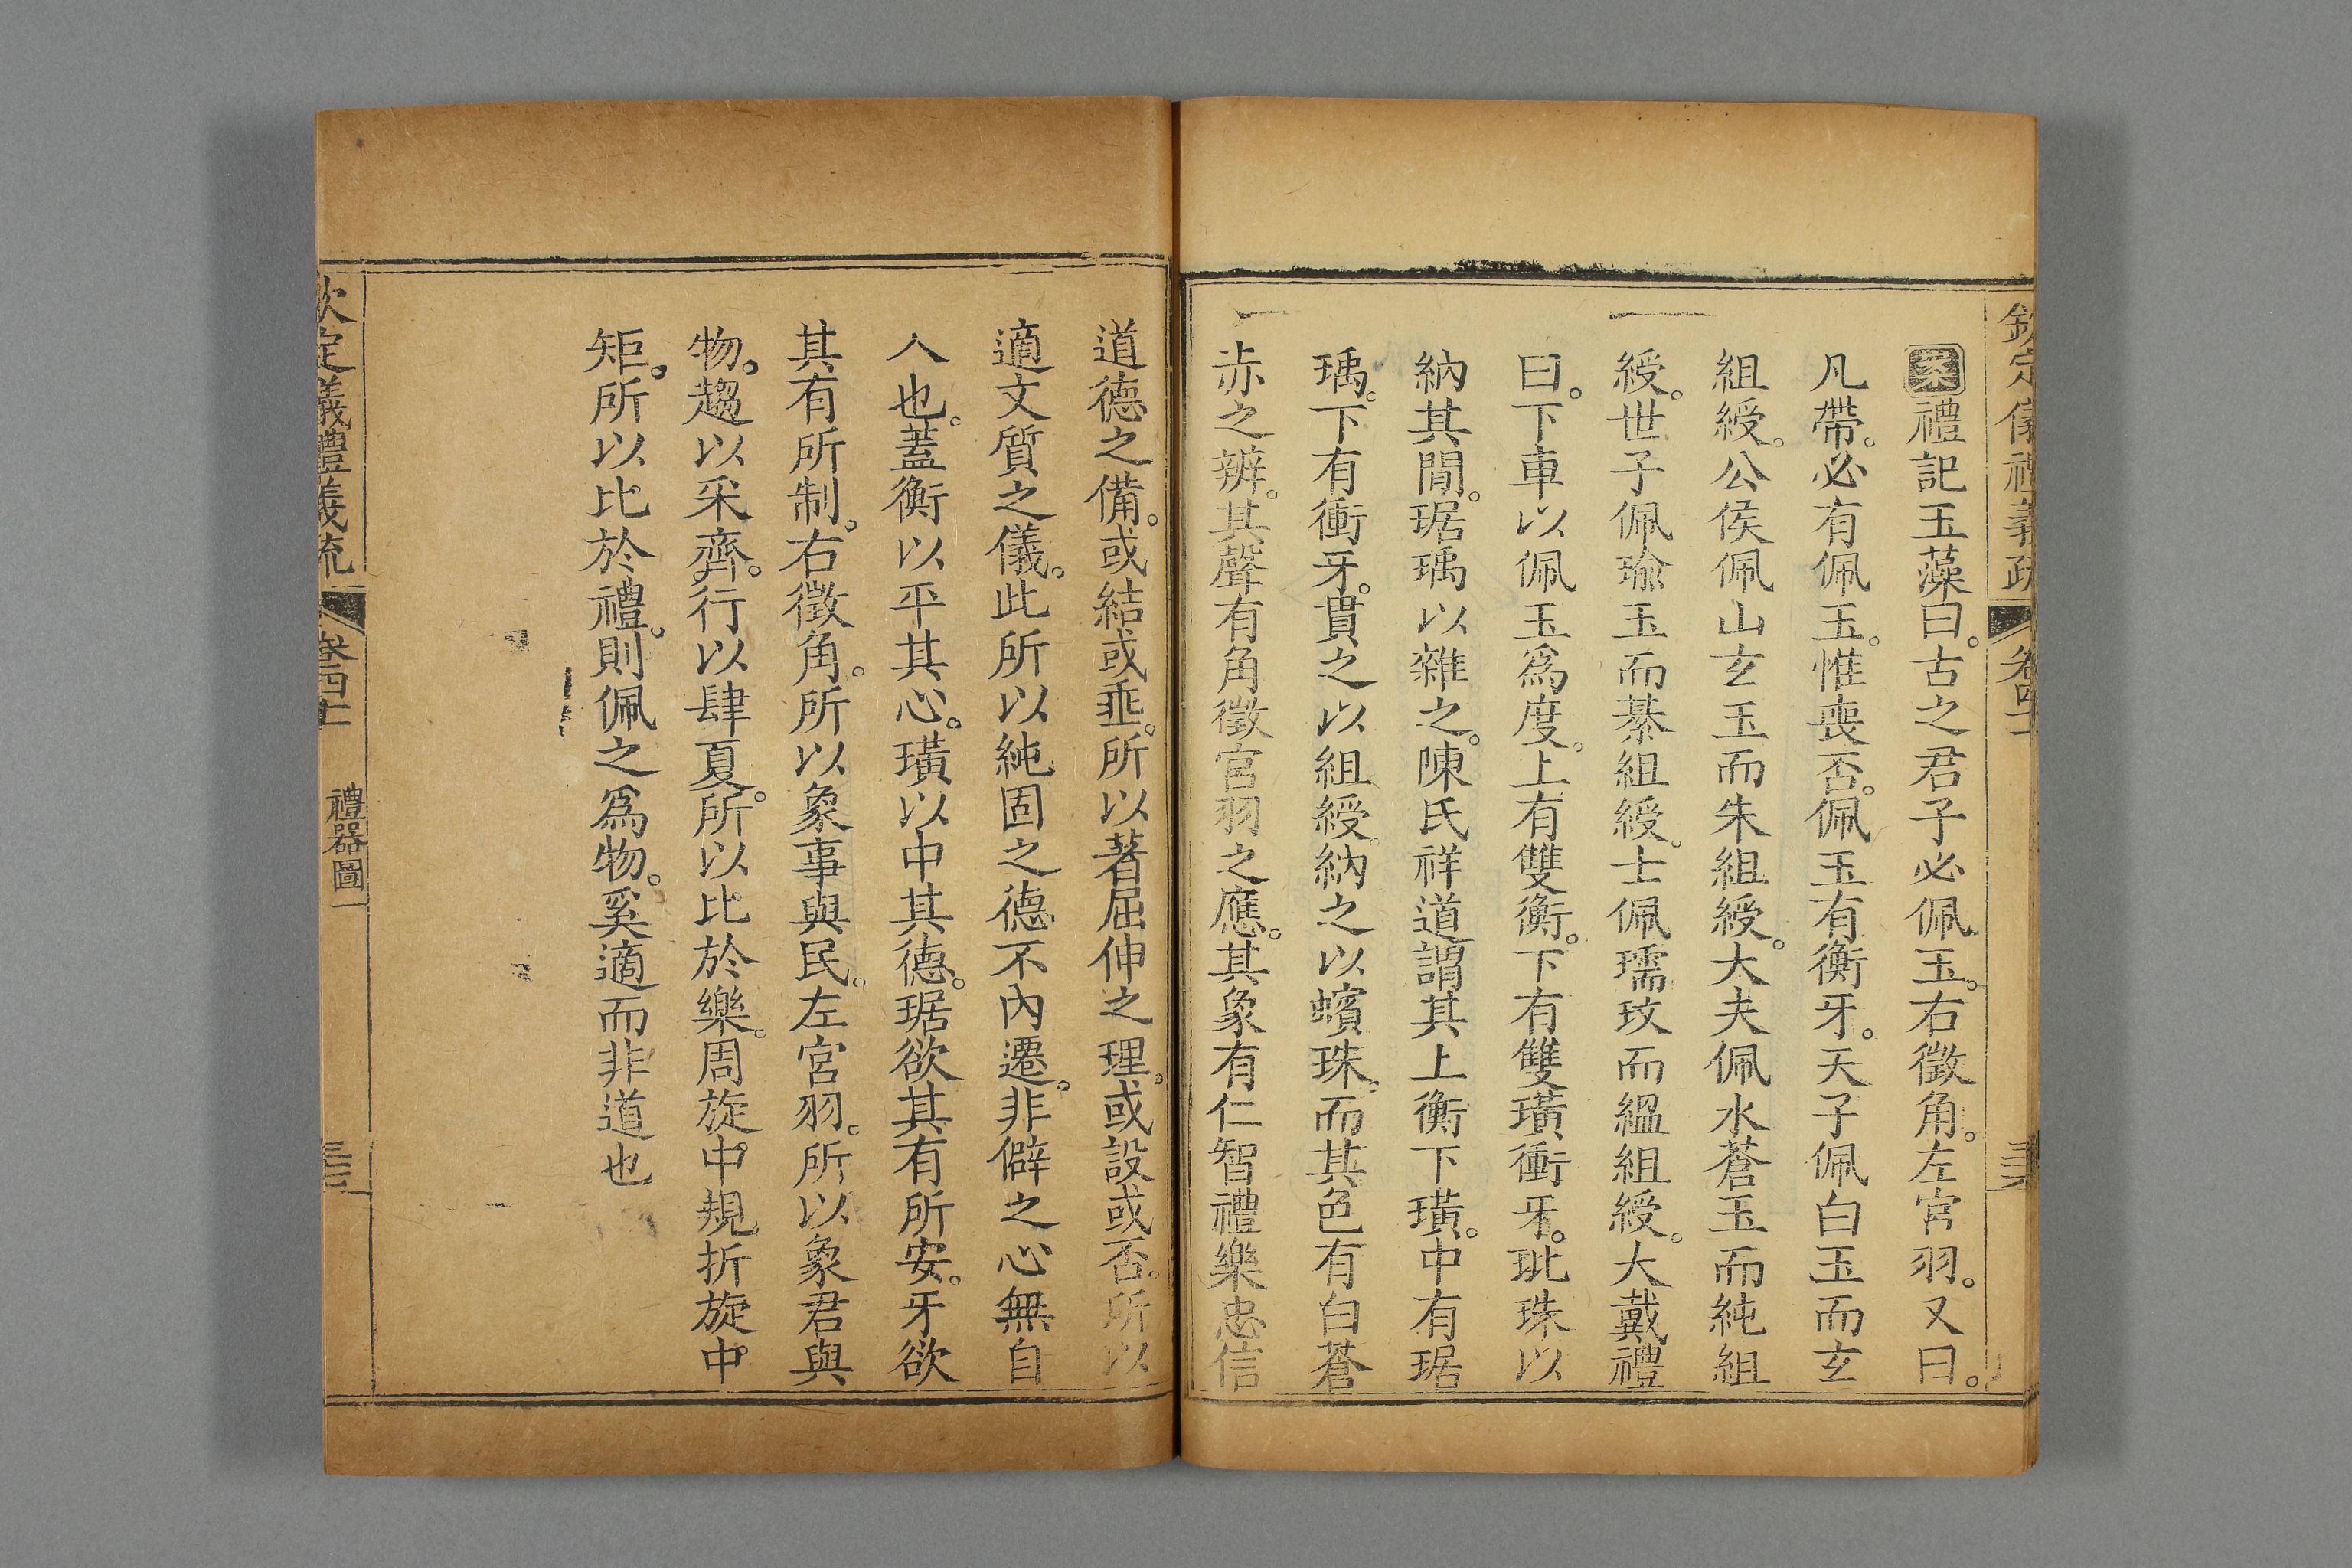 欽定儀禮義疏 卷四十一
案禮記玉藻曰。古之君子必佩玉。右徵角。左宮羽。又曰。
凡帶。必有佩玉。惟喪否。佩玉有衡牙。天子佩白玉而玄
組綬。公侯佩山玄玉而朱組綬。大夫佩水蒼玉而純組
綬。世子佩瑜玉而綦組綬。士佩瓀玟而縕組綬。大戴禮
曰。下車以佩玉爲度。上有雙衡。下有雙璜衝牙。玭珠以
納其間。琚瑀以雜之。陳氏祥道謂其上衡下璜。中有琚
瑀。下有衝牙。貫之以組綬。納之以蠙珠。而其色有白蒼
赤之辨。其聲有角徵宮羽之應。其象有仁智禮樂忠信
道德之備。或結或垂。所以著屈伸之理。或設或否。所以
適文質之儀。此所以純固之德不內遷。非僻之心無自
入也。蓋衡以平其心。璜以中其德。琚欲其有所安。牙欲
其有所制。右徵角。所以象事與民。左宮羽。所以象君與
物。趨以采齊。行以肆夏。所以比於樂。周旋中規折旋中
矩。所以比於禮。則佩之爲物。奚適而非道也
欽定儀禮義疏 卷四十一 禮器圖一